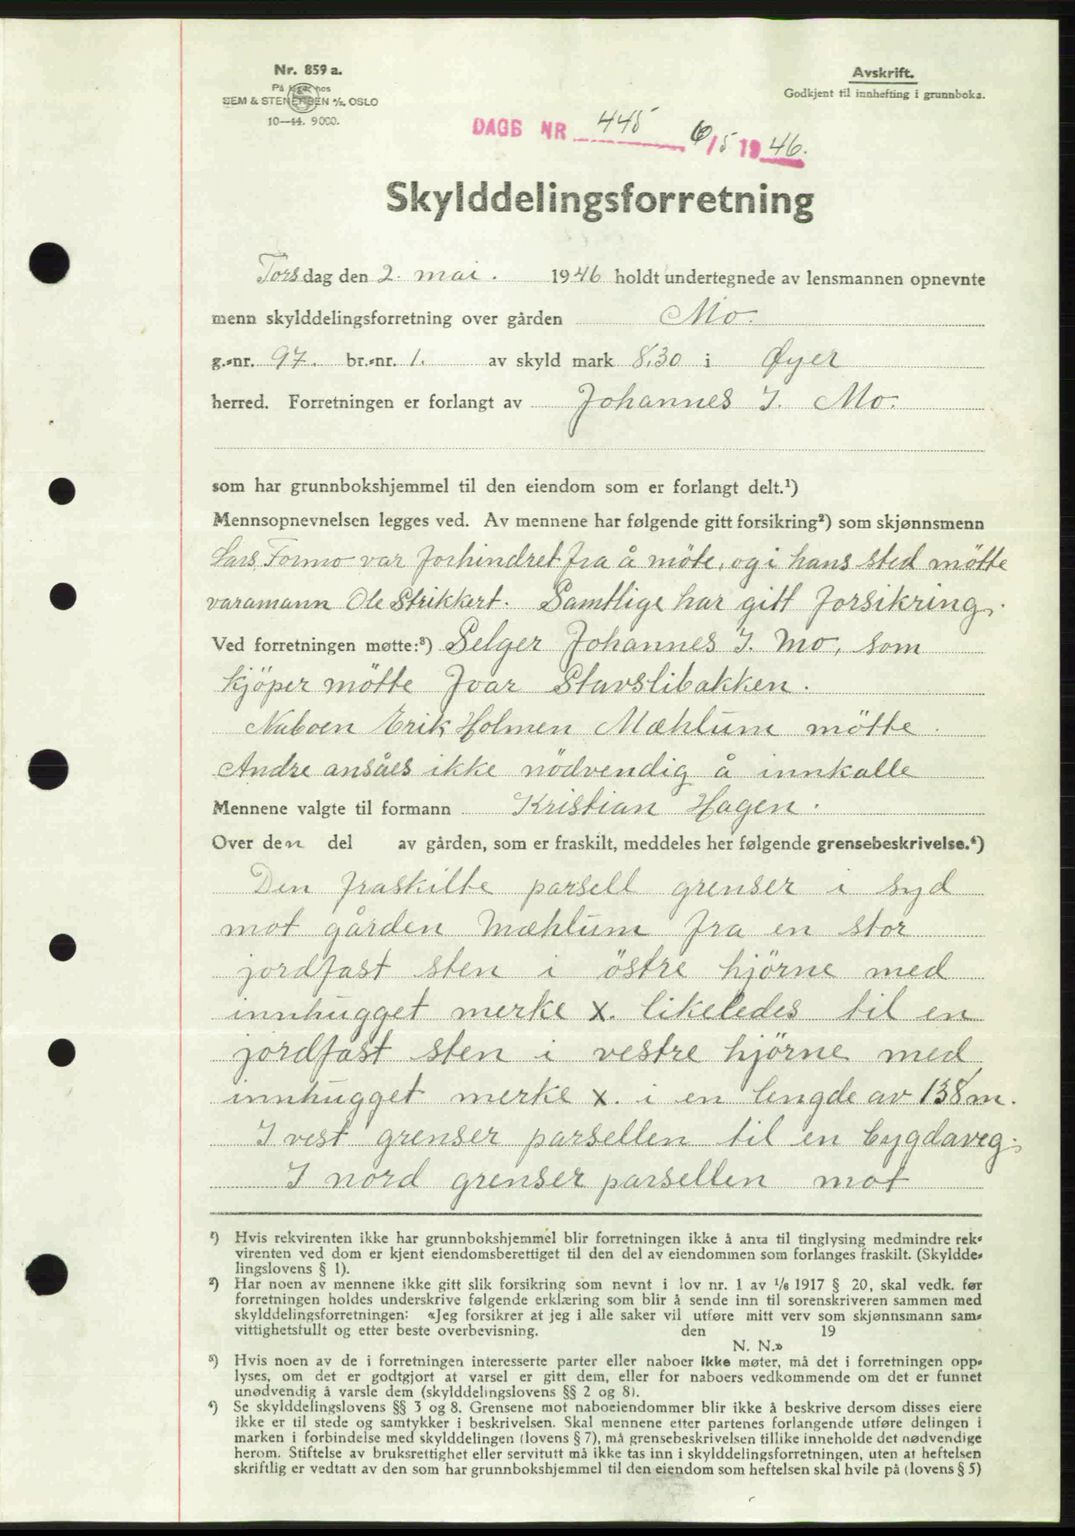 Nr. 859 a.
På lager hos
SEM & STENERSEN A/S, OSLO
10-44. 9000.
Avskrift.
Godkjent til innhefting i grunnboka.
DAGB NR 445 6/5 1946.
Skylddelingsforretning
Torsdag den 2. mai. 1946 holdt undertegnede av lensmannen opnevnte
menn skylddelingsforretning over gården Mo.
g.-nr. 97. br.-nr. 1. av skyld mark 8,30 i Øyer
herred. Forretningen er forlangt av Johannes I. Mo.
som har grunnbokshjemmel til den eiendom som er forlangt delt.¹)
Mennsopnevnelsen legges ved. Av mennene har følgende gitt forsikring²) som skjønnsmenn
Lars Formo var forhindret fra å möte, og i hans sted mötte
varamann Ole Strikkert. Samtlige har gitt forsikring.
Ved forretningen møtte:³) Selger Johannes I. Mo, som
kjöper mötte Ivar Stavslibakken.
Naboen Erik Holmen Mæhlum mötte.
Andre ansåes ikke nödvendig å innkalle
Mennene valgte til formann Kristian Hagen.
Over den del av gården, som er fraskilt, meddeles her følgende grensebeskrivelse.⁴)
Den fraskilte parsell grenser i syd
mot gården Mæhlum fra en stor
jordfast sten i östre hjörne med
innhugget merke x. likeledes til en
jordfast sten i vestre hjörne med
innhugget merke x. i en lengde av 138 m.
I vest grenser parsellen til en bygdaveg.
I nord grenser parsellen mot
¹) Hvis rekvirenten ikke har grunnbokshjemmel blir forretningen ikke å anta til tinglysing medmindre rek-
virenten ved dom er kjent eiendomsberettiget til den del av eiendommen som forlanges fraskilt. (Skyldde-
lingslovens § 1).
²) Har noen av mennene ikke gitt slik forsikring som nevnt i lov nr. 1 av 1/6 1917 § 20, skal vedk. før
forretningen holdes underskrive følgende erklæring som blir å sende inn til sorenskriveren sammen med
skylddelingsforretningen: «Jeg forsikrer at jeg i alle saker vil utføre mitt verv som skjønnsmann sam-
vittighetsfullt og etter beste overbevisning. den 19
N. N.»
³) Hvis noen av de i forretningen interesserte parter eller naboer ikke møter, må det i forretningen opp-
lyses, om det er godtgjort at varsel er gitt dem, eller for naboers vedkommende om det er funnet
unødvendig å varsle dem (skylddelingslovens §§ 2 og 8).
⁴) Se skylddelingslovens §§ 3 og 8. Grensene mot naboeiendommer blir ikke å beskrive dersom disses eiere
ikke er til stede og samtykker i beskrivelsen. Skal mennene etter partenes forlangende utføre delingen i
marken i forbindelse med skylddelingen (lovens § 7), må grensebeskrivelsen tillike inneholde det nødvendige
herom. Stiftelse av bruksrettighet eller servitutt må ikke tas inn i skylddelingsforretningen, uten at heftelsen
skriftlig er vedtatt av den som har grunnbokshjemmel til den eiendom som heftelsen skal hvile på (lovens § 5)